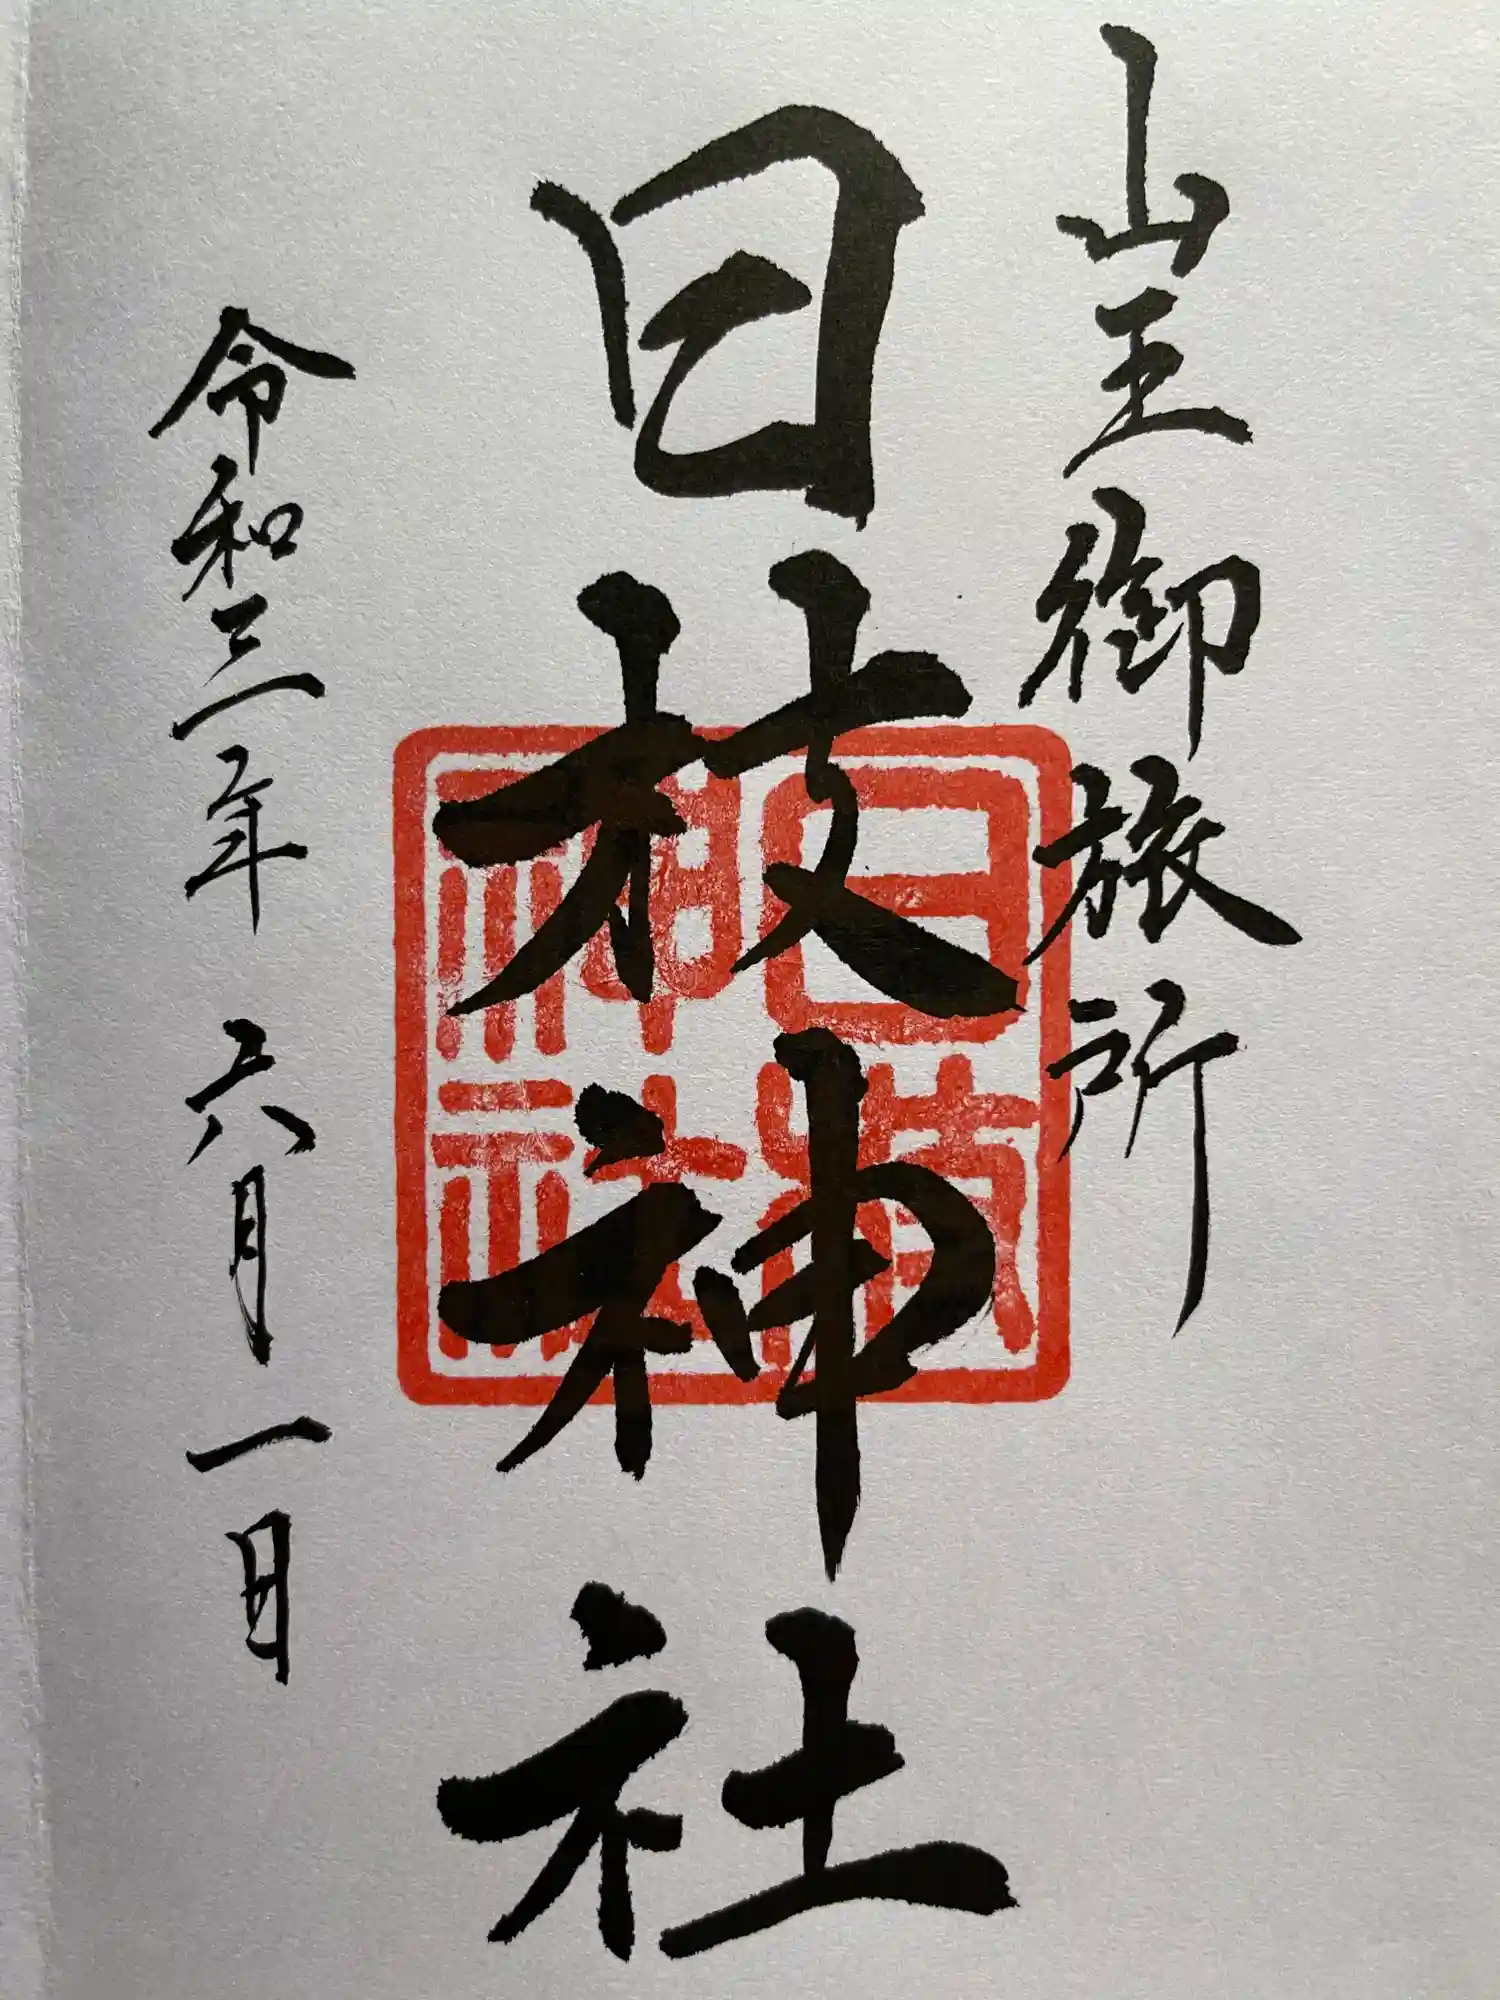 山王御旅所
日枝神社
日枝神社
令和三年 六月 一日